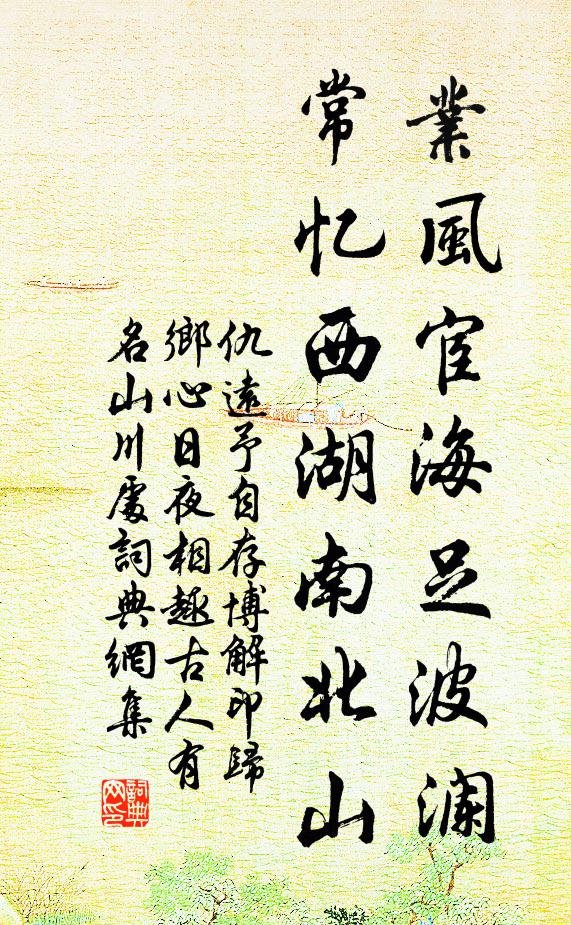 業風宦海足波澜
常忆西湖南北山
仇遠予自存博解印歸
鄉心日夜相趣古人有
名山川處詞典網集
詞典
网印